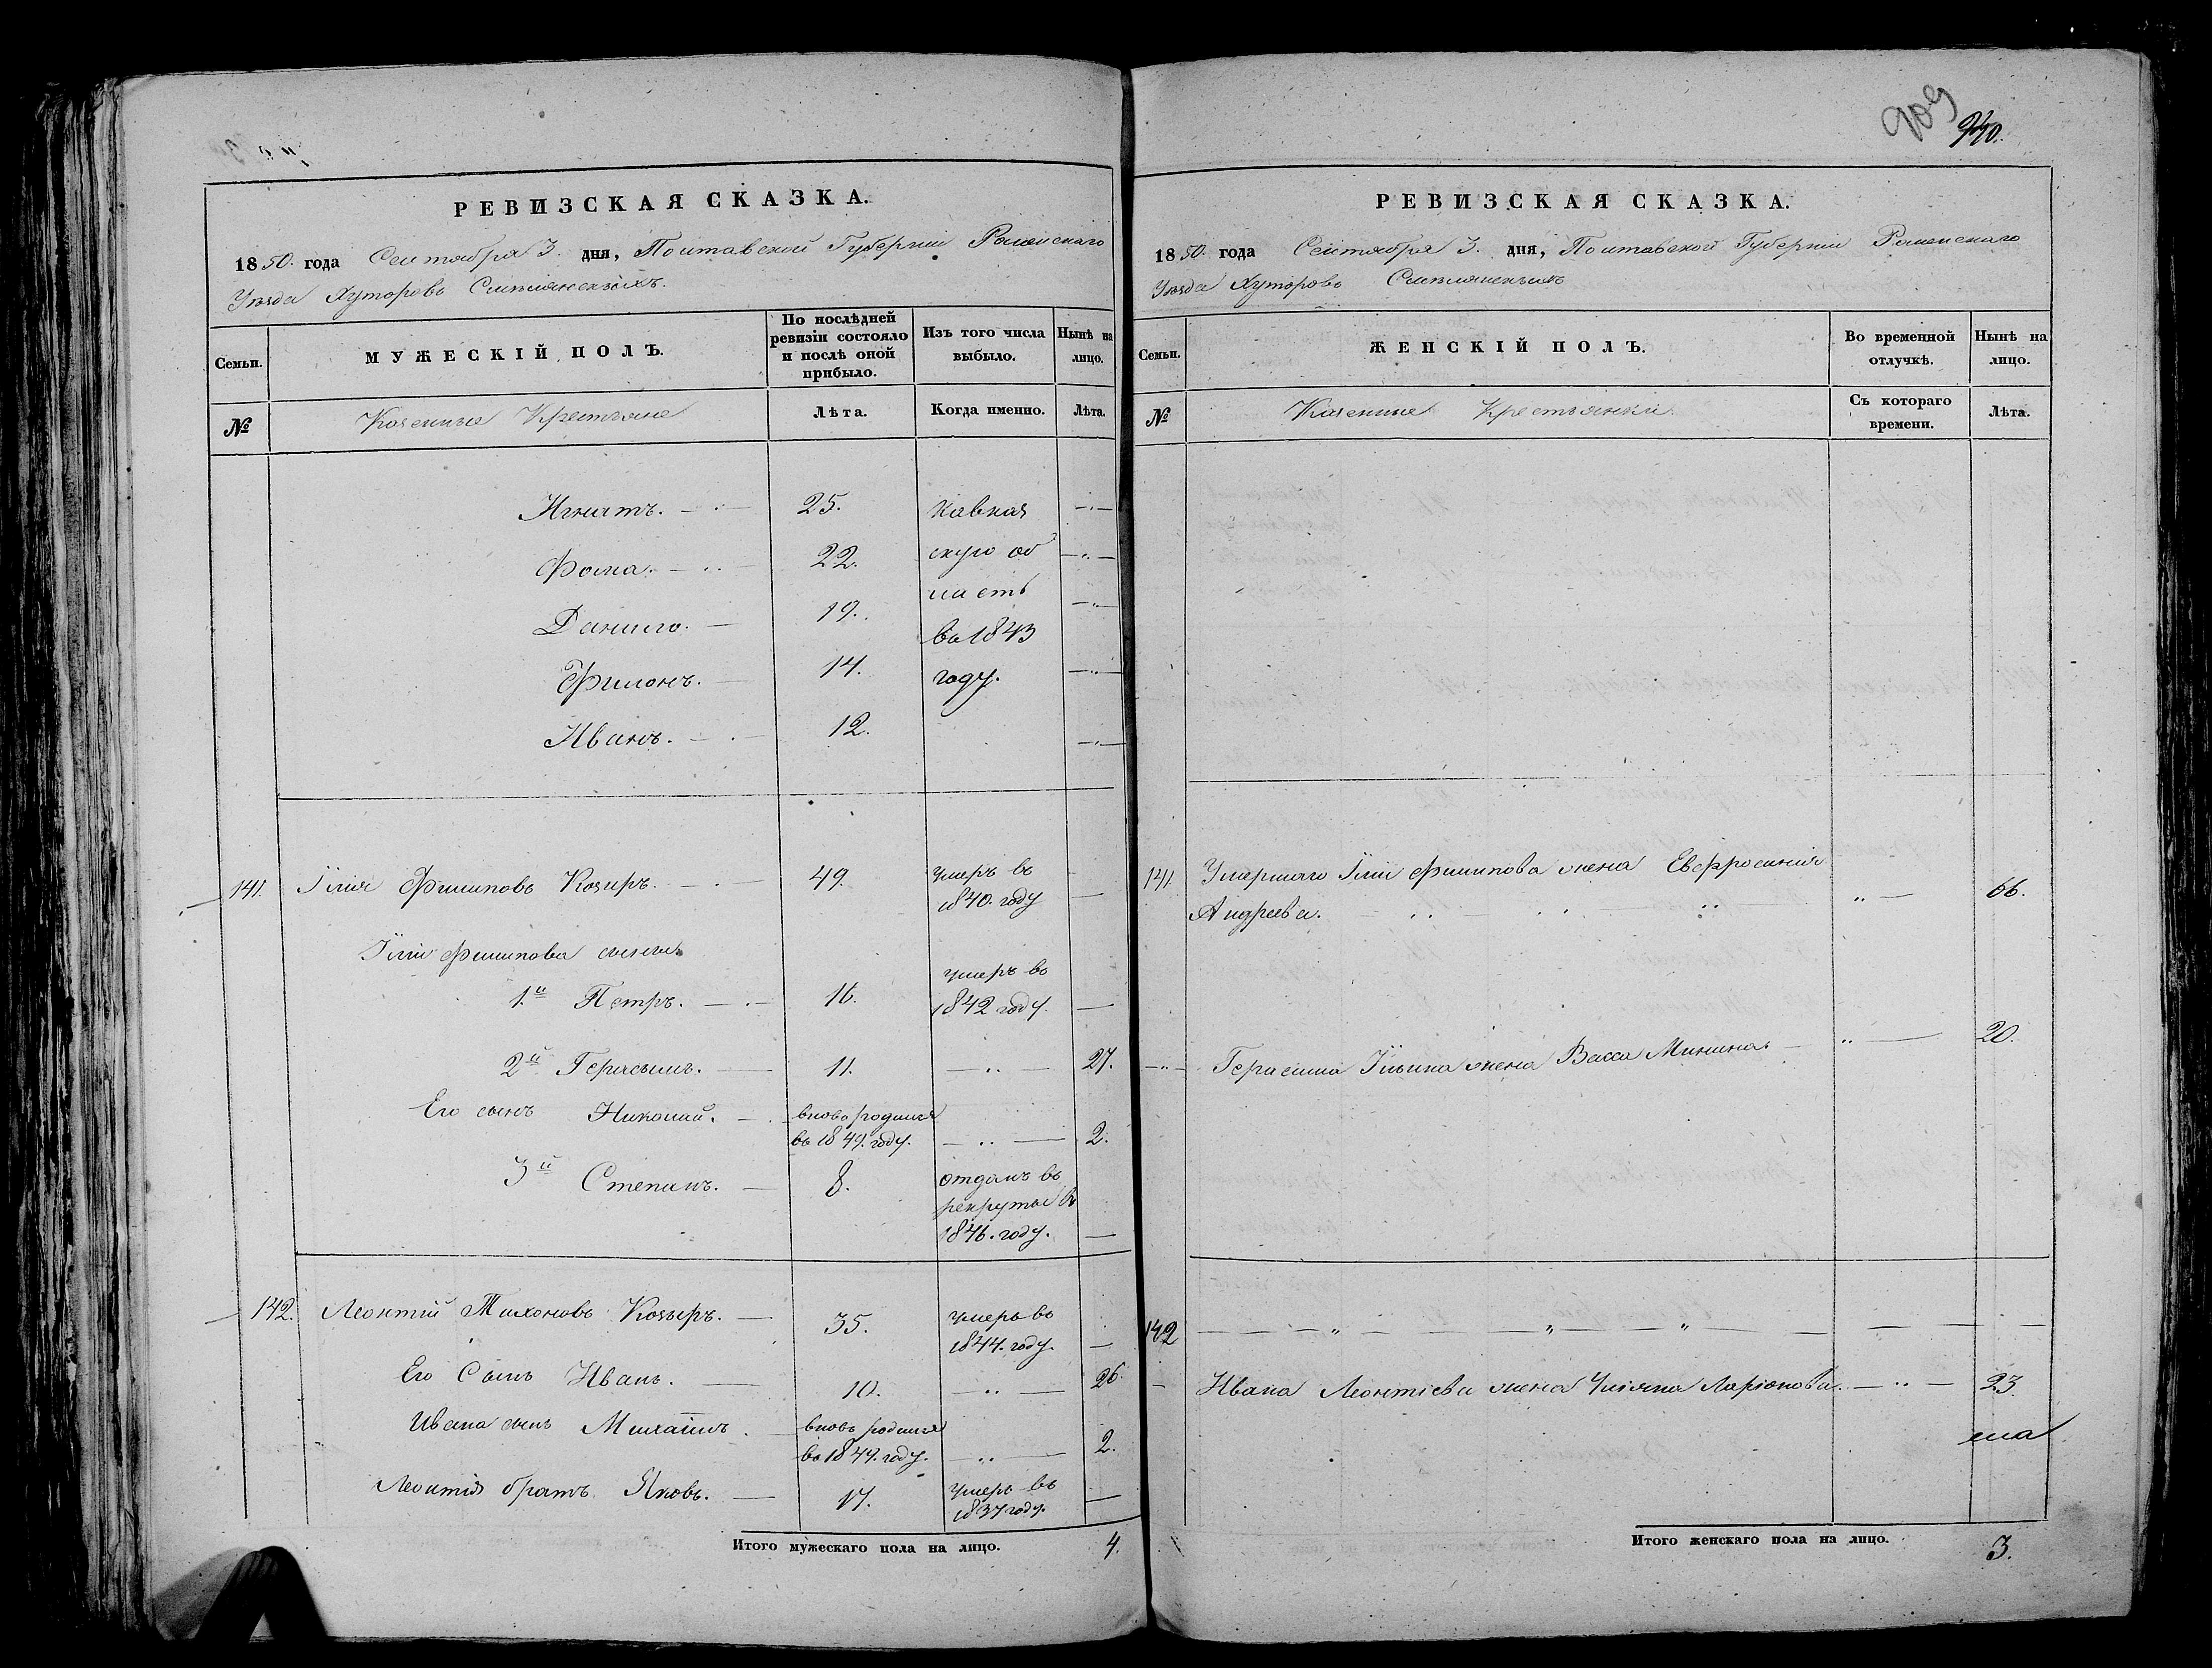 РЕВИЗСКАЯ СКАЗКА.
1850. года Сентября 3. дня, Полтавской Губернии Роменскаго
Уезда Хуторовъ
Семьи.
МУЖЕСКІЙ ПОЛЪ.
По послѣдней ревизіи состояло и послѣ оной прибыло.
Изъ того числа выбыло.
Нынѣ на лицо.
№
Казенные Крестьяне
Лѣта.
Когда именно.
Лѣта.
Игнатъ. 25. кавказ
Фома. 22. скую об
Данило. 19. ласть
въ 1843
Филонъ. 14. году.
Иванъ. 12.
141. Iлія Филиповъ Козыръ. 49. умеръ въ
1840. году —
Iліи Филипова сыновья
1.й Петръ. 16. умеръ въ
1842 году. —
2й Герасимъ. 11. — 27.
Его сынъ Николай. вновь родился
въ 1849. году. — 2.
3й Степанъ. 8. отданъ въ
рекруты въ
1846. году. —
142. Леонтій Тихоновъ Козыръ. 35. умеръ въ
1844. году. —
Его Сынъ Иванъ. 10. — 26.
Ивана сынъ Михаилъ. вновь родился
въ 1849. году. — 2.
Леонтія братъ Яковъ. 17. умеръ въ
1837 году. —
Итого мужескаго пола на лицо. 4.
909
910.
РЕВИЗСКАЯ СКАЗКА.
1850. года Сентября 3. дня, Полтавской Губерніи Роменскаго
Уѣзда Хуторовъ
Семьи.
ЖЕНСКІЙ ПОЛЪ.
Во временной отлучкѣ.
Нынѣ на лицо.
№
Казенные Крестьянки
Съ котораго времени.
Лѣта.
141. Умершаго Iліи Филипова жена Евфросинія
Андреева. — 66.
Герасима Iльина жена Васса Минина — 20.
142
Ивана Леонтіева жена Уліяна Ларіонова. — 23.
Итого женскаго пола на лицо. 3.